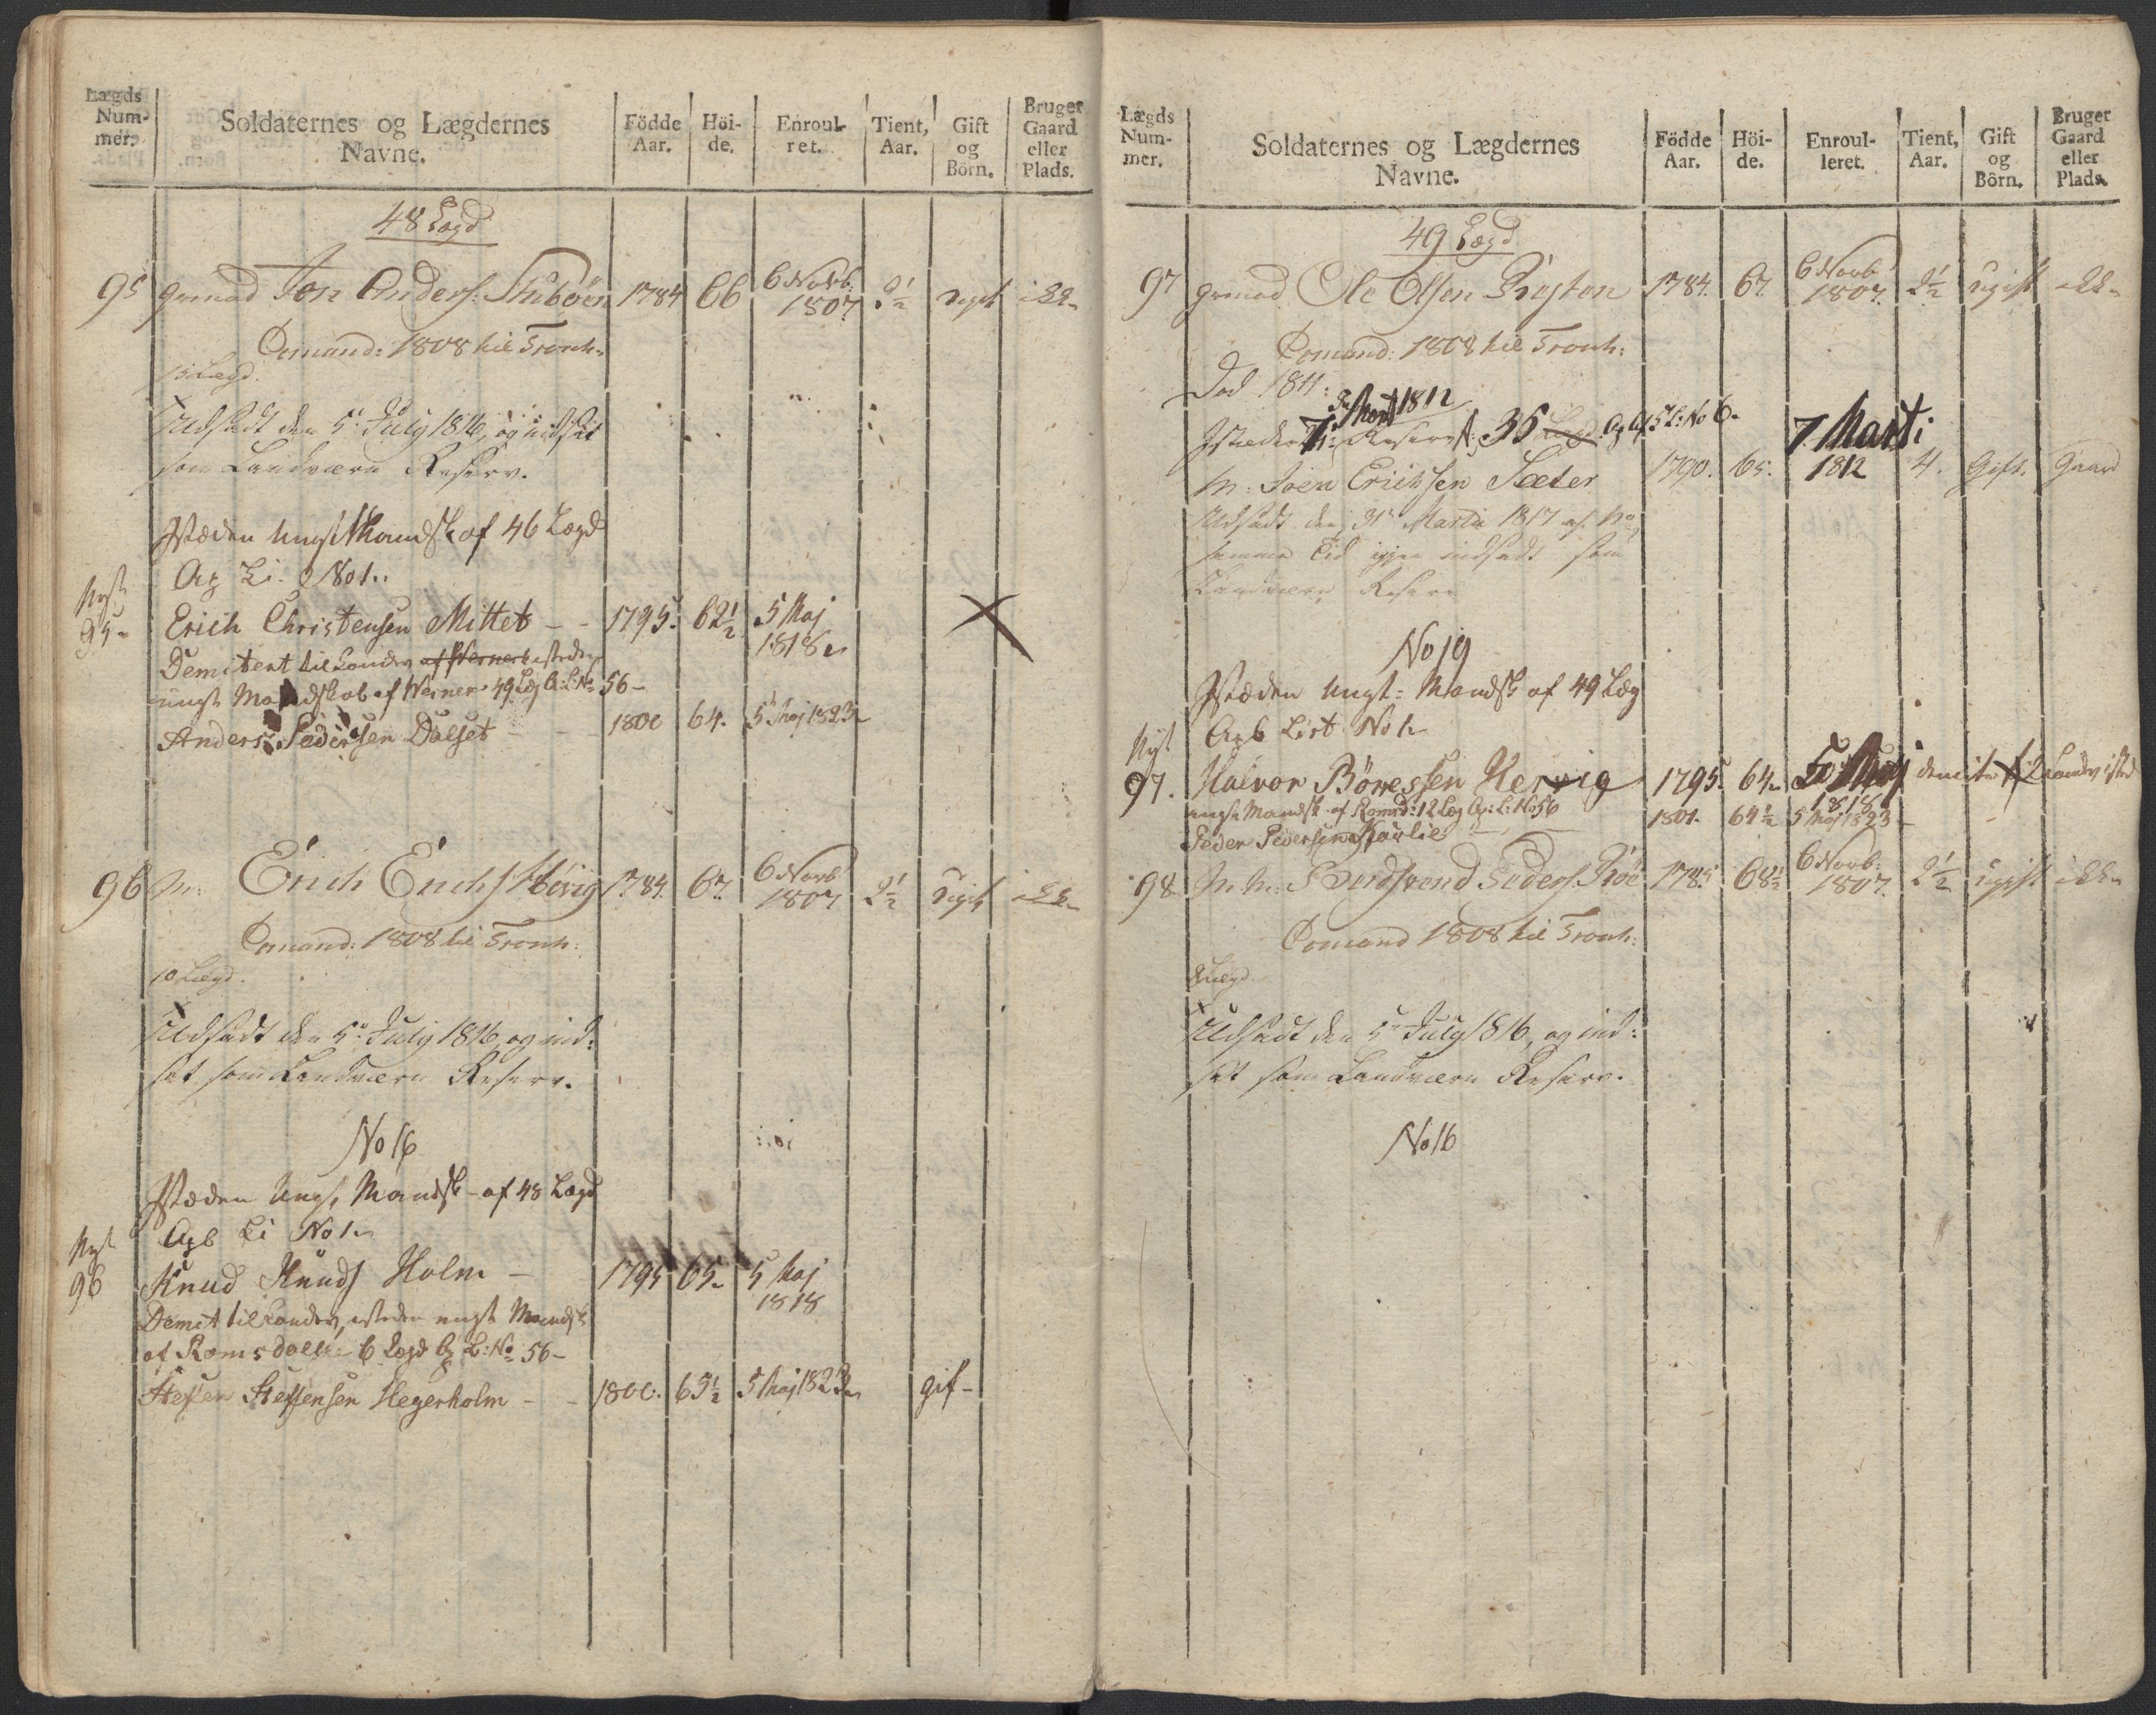 Lægds Num- mer.
Soldaternes og Lægdernes Navne.
Födde Aar.
Höi- de.
Enroul- ret.
Tient, Aar.
Gift og Börn.
Bruger Gaard eller Plads.
48 Lægd
95 Jon Anders. 1784 66 6 Novb. 1807 2½ ugift ikke
Comand: 1808 til Tronh:
15 Lægd.
Udsadt den 5te July 1816, og indsat
som Landværn Reserv.
Isteden Ungt Mandsk af 46 Lægd
Li. No 1.
Nyt
95 Erich Christensen Mittet 1795. 62½ 5 Maj 1818
Demitert til Landv isteden
ungt Mandskab af Werner 49 Læg L: No 56
Anders Pedersen Dalset 1800 64. 5 Maj 1823
96 Erich Erichs Hovig 1784. 67. 6 Novb 1807 2½ ugift ikke
Comand: 1808 til Tronh:
10 Lægd.
Udsadt den 5te July 1816, og ind:
sat som Landværn Reserv.
No 16
Isteden Ungt Mandsk af 48 Lægd
Li No 1
Nyt
96 Knud Knuds Holm 1795 65 5 Maj 1818
Demit til Landv, isteden ungt Mandsk
af Romsdalske 6 Lægd L: No 56
Steffen Steffensen Hegerholm 1800. 65½ 5 Maj 1823 gif
Lægds Num- mer.
Soldaternes og Lægdernes Navne.
Födde Aar.
Höi- de.
Enroul- leret.
Tient, Aar.
Gift og Börn.
Bruger Gaard eller Plads.
49 Lægd
97 Ole Olsen 1784. 67. 6 Novb 1807. 2½ ugift ikke
Comand: 1808 til Tronh:
Död 1811:
7 Mart 1812
Isteden Reserv 36 No 6
M: Joen Erichsen Sæter 1790. 65. 7 Marti 1812 4. Gift. Gaard
Udsadt den 31te Martii 1817 af No
samme Tid igjen indsadt som
Landværn Reserv
No 19
Isteden Ungt Mandsk af 49 Læg
List No 1
Nyt
97. Halvor Börressen Hervig 1795. 64 5 Maj 1818 demite til Landv isted
ungt Mandsk af Romsd: 12 Læg L: No 56
Peder Pedersen 1801. 64½ 5 Maj 1823
98 M: Peders. 1785 68½ 6 Novb: 1807. 2½ ugift ikke
Comand 1808 til Tronh:
Lægd.
Udsadt den 5te July 1816, og ind:
sat som Landværn Reserv.
No 16